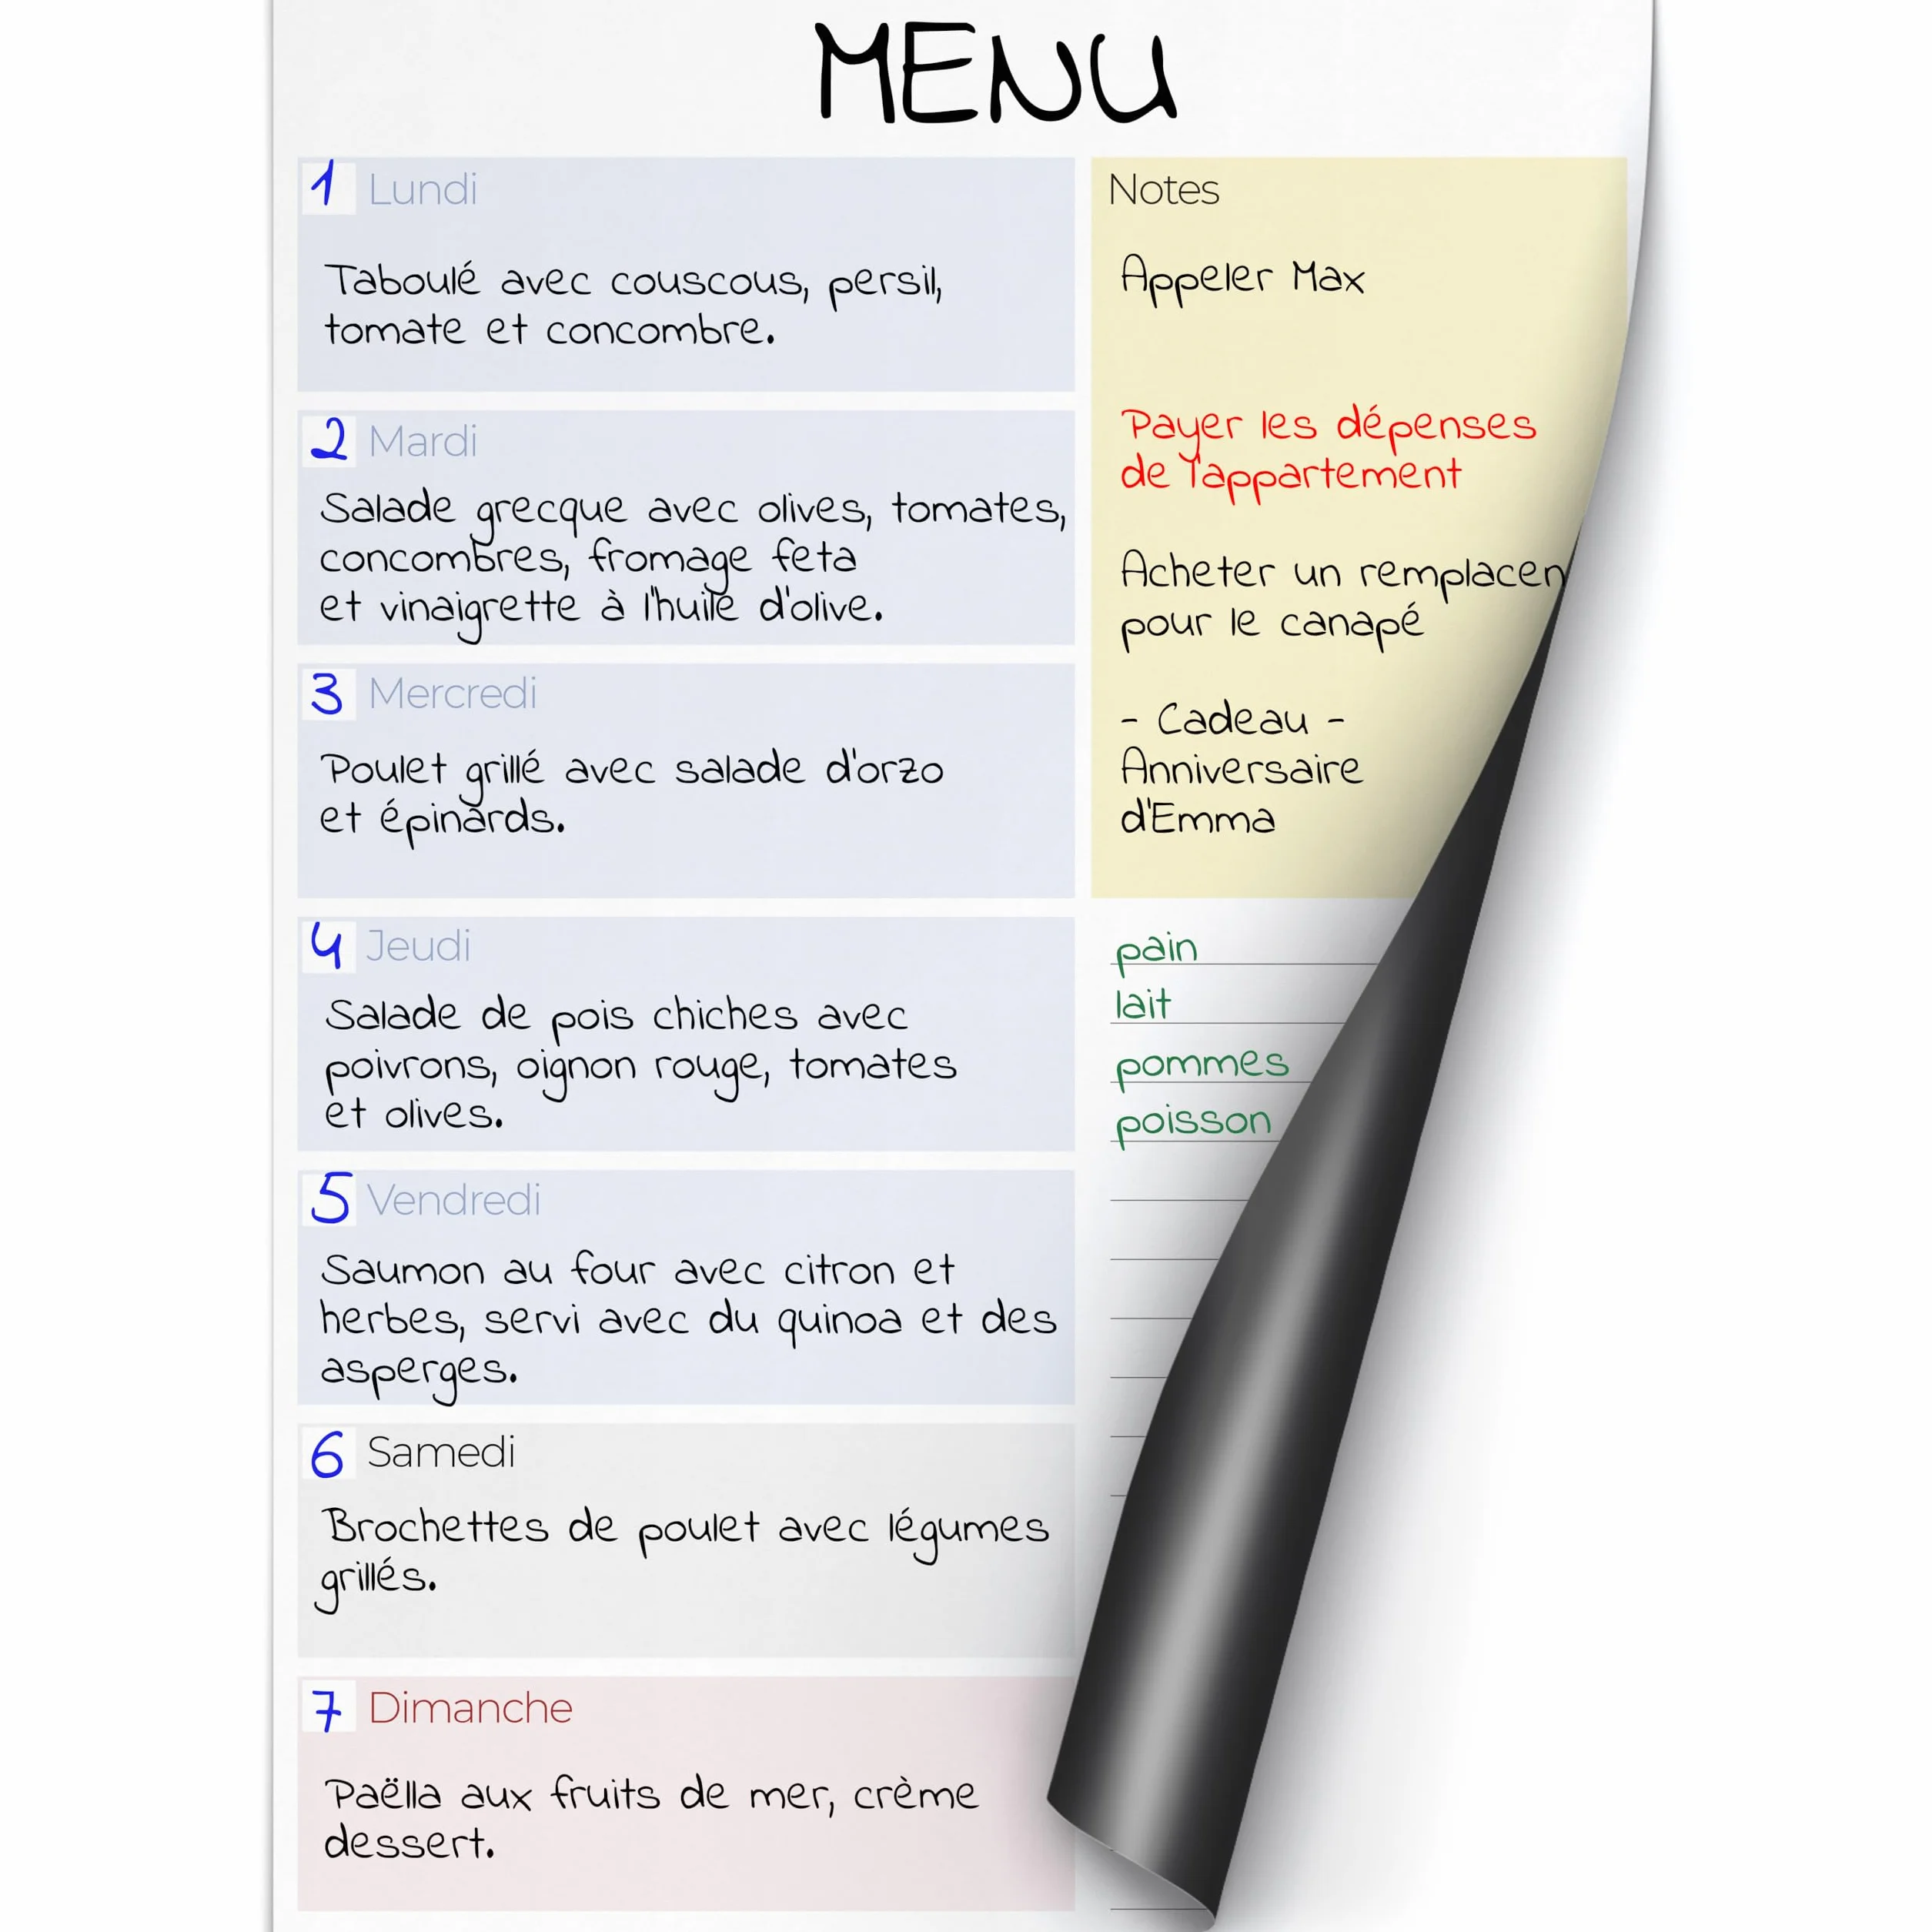 MENU
1 Lundi
Taboulé avec couscous, persil,
tomate et concombre.
2 Mardi
Salade grecque avec olives, tomates,
concombres, fromage feta
et vinaigrette à l'huile d'olive.
3 Mercredi
Poulet grillé avec salade d'orzo
et épinards.
4 Jeudi
Salade de pois chiches avec
poivrons, oignon rouge, tomates
et olives.
5 Vendredi
Saumon au four avec citron et
herbes, servi avec du quinoa et des
asperges.
6 Samedi
Brochettes de poulet avec légumes
grillés.
7 Dimanche
Paëlla aux fruits de mer, crème
dessert.
Notes
Appeler Max
Payer les dépenses
de l'appartement
Acheter un
pour le canapé
- Cadeau -
Anniversaire
d'Emma
pain
lait
pommes
poisson